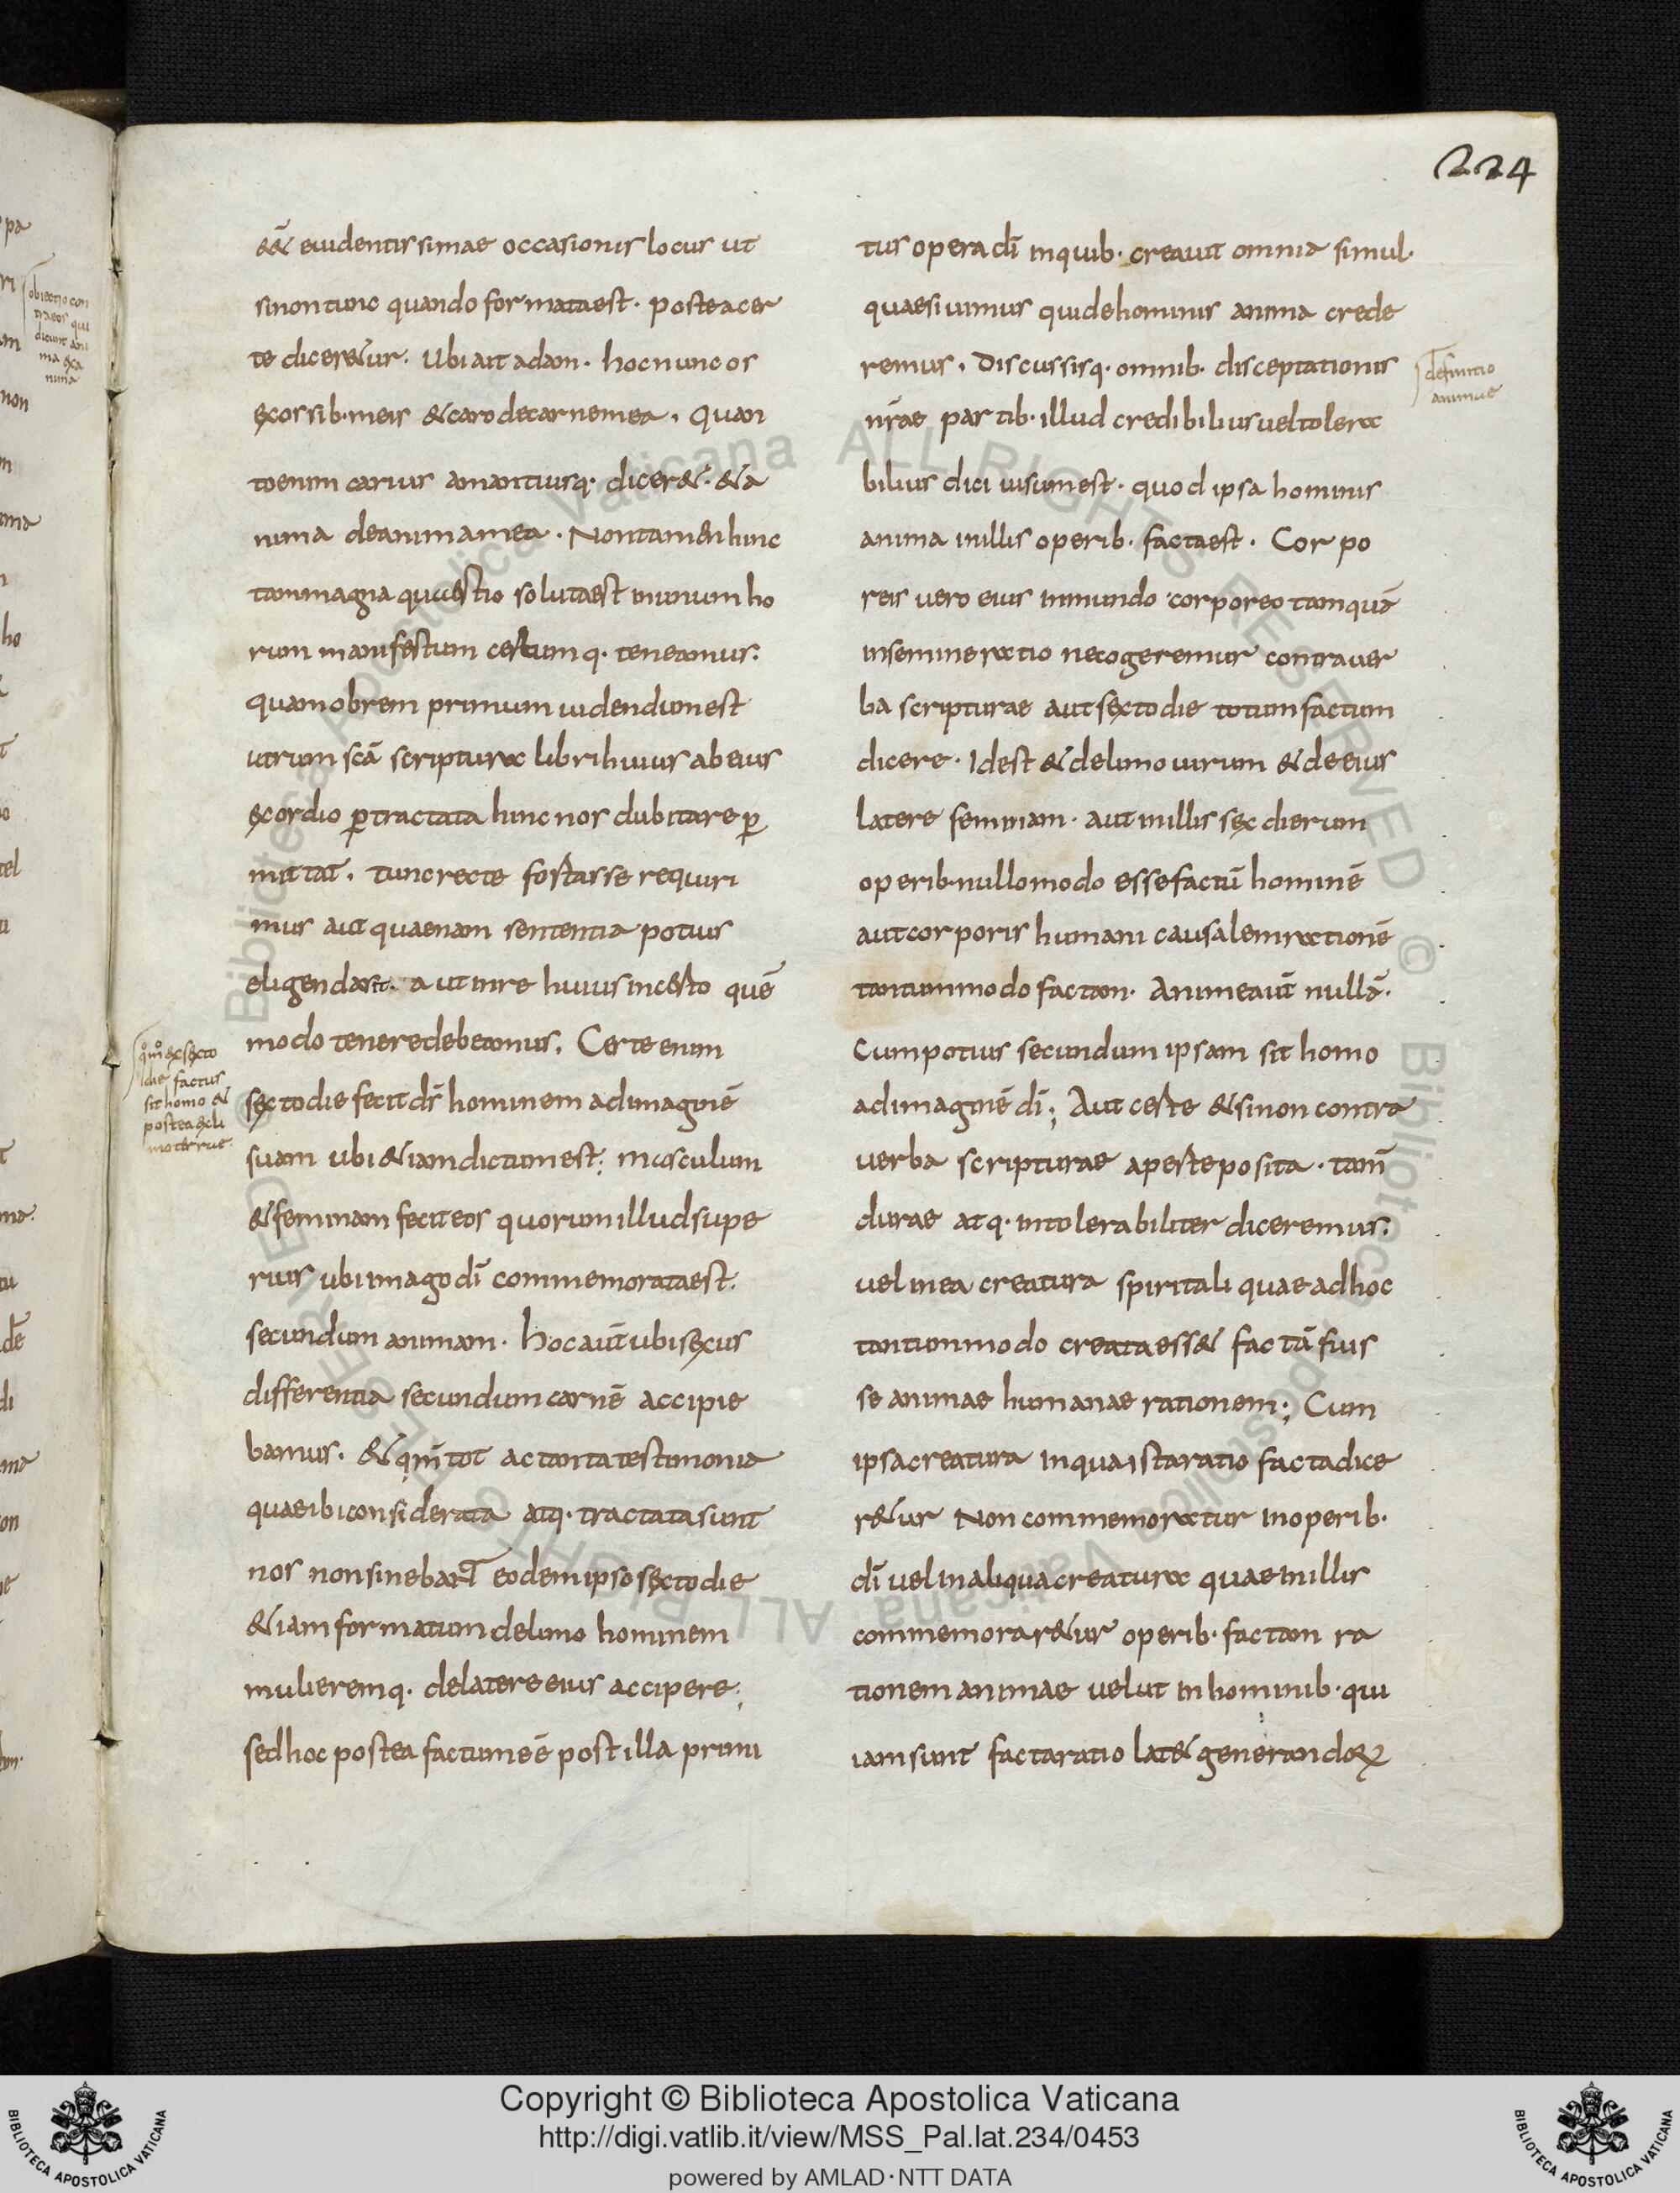 224
eēt euidentissimae occasionis locus ut
sinontunc quando formataest· posteacer
te diceretur· Ubi ait adam· hocnuncos
exossib·meis etcarodecarnemea· Quan
toenim carius amantiusq· diceret· eta
nima deanimamea· Nontamenhinc
tammagna quaestio solutaest inunum ho
rum manifestum certumq· teneamus:
quamobrem primum uidendumest
utrum scā scriptura libri huius ab eius
exordio ꝑtractata hinc nos dubitare ꝑ
mittat· tuncrecte fortasse requiri
mus aut quaenam sententia potius
eligendasit· aut inre huius incerto quē
modo teneredebeamus· Certe enim
sextodie fecit dś hominem adimaginē
suam ubi etiamdictumest; masculum
etfeminam feciteos quorum illudsupe
rius ubi imago dī commemorataest·
secundum animam· hocaūt ubi sexus
differentia secundumcarnē accipie
bamus· etqm̄ tot actanta testimonia
quaeibiconsiderata atq· tractatasunt
nos nonsinebant eodemipso sextodie
etiamformatum delimo hominem
mulieremq· delatere eius accipere;
sedhoc postea factumeē post illa primi
qm̄ exsexto
die factus
sit homo et
postea exli
mo terrae
tus opera dī inquib· creauit omnia simul·
quaesiuimus quidehominis anima crede
remus· Discussisq· omnib· disceptationis
nr̄ae partib· illud credibilius ueltolera
bilius dici uisumest· quod ipsa hominis
anima inillis operib· factaest· Corpo
reis uero eius inmundo corporeo tamquā
insemine ratio necogeremur contrauer
ba scripturae aut sextodie totum factum
dicere· Idest et delimo uirum et de eius
latere feminam· aut inillis sex dierum
operib·nullomodo essefactū hominē
autcorporis humani causalemrationē
tantummodo factam· Animeaūt nullā·
Cumpotius secundum ipsam sit homo
adimaginē dī; Aut certe etsinon contra
uerba scripturae aperteposita· tam̄
durae atq· intolerabiliter diceremus:
uel inea creatura spiritali quae adhoc
tantummodo creata esset factā fuis
se animae humanae rationem; Cum
ipsacreatura inqua istaratio factadice
retur Non commemoratur inoperib·
dī uel inaliquacreatura quae inillis
commemoraretur operib· factam ra
tionem animae uelut inhominib· qui
iamsunt factaratio latet generandoꝝ
definitio
animae
obiectio con
tra eos qui
dicunt ani
ma exa
nima
Copyright © Biblioteca Apostolica Vaticana
http://digi.vatlib.it/view/MSS_Pal.lat.234/0453
powered by AMLAD·NTT DATA
BIBLIOTECA APOSTOLICA VATICANA
BIBLIOTECA APOSTOLICA VATICANA